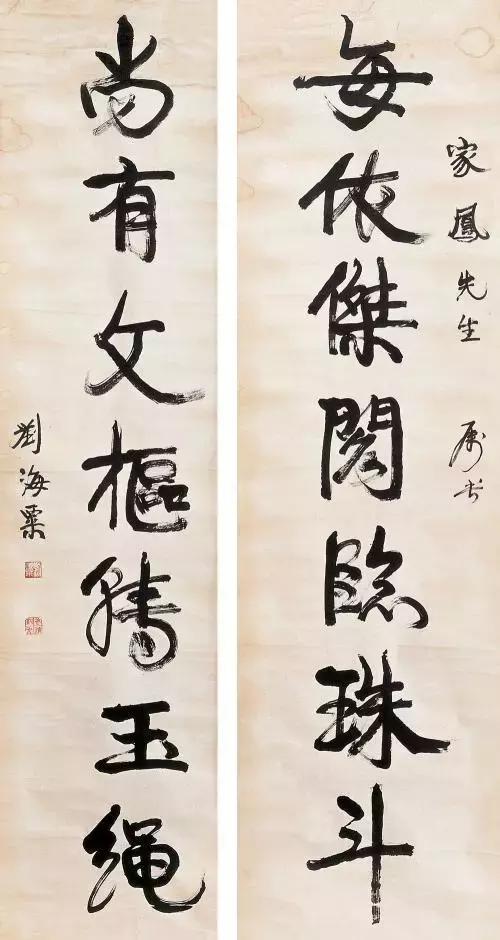 家鳳先生 属书
每依傑閣臨珠斗
尚有文樞騰玉繩
劉海粟